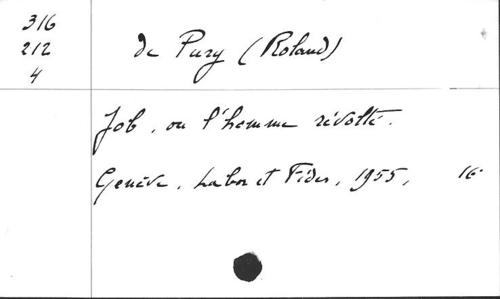 316
212
4
de Pury (Roland)
Job, ou l'homme révolté.
Genève, Labor et Fides, 1955, 16°